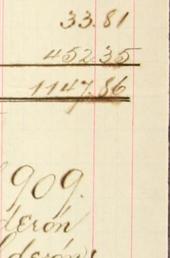 33.81
452.35
1147.86
909.
derón
lderón